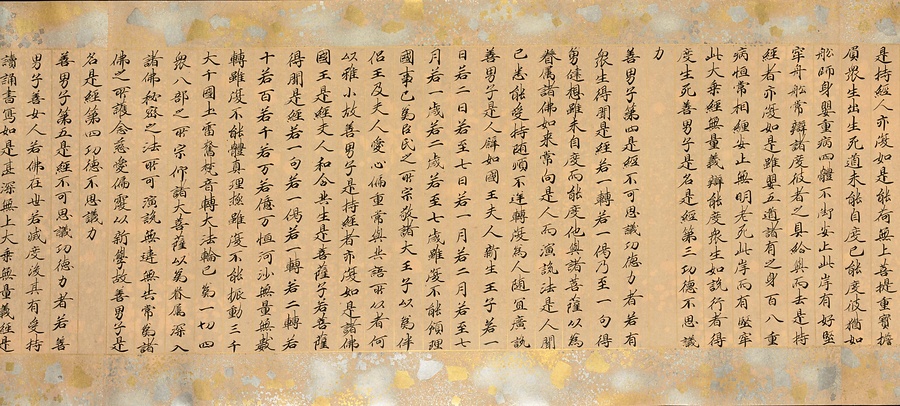 是持經人亦復如是能荷無上菩提重寶擔
負衆生出生死道未能自度已能度彼猶如
船師身嬰重病四體不御安止此岸有好堅
牢舟船常辦諸度彼者之具給與而去是持
經者亦復如是雖嬰五道諸有之身百八重
病恒常相纏安止無明老死此岸而有堅牢
此大乘經無量義辦能度衆生如說行者得
度生死善男子是名是經第三功德不思議
力
善男子第四是經不可思議功德力者若有
衆生得聞是經若一轉若一偈乃至一句得
勇健想雖未自度而能度他與諸菩薩以為
眷属諸佛如來常向是人而演說法是人聞
已悉能受持隨順不逆轉復為人隨宜廣說
善男子是人辟如國王夫人新生王子若一
日若二日若至七日若一月若二月若至七
月若一歲若二歲若至七歲雖復不能領理
國事已為臣民之所宗敬諸大王子以為伴
侶王及夫人愛心偏重常與共語所以者何
以稚小故善男子是持經者亦復如是諸佛
國王是經夫人和合共生是菩薩子若菩薩
得聞是經若一句若一偈若一轉若二轉若
十若百若千若万若億万恒河沙無量無數
轉雖復不能體真理極雖復不能振動三千
大千國土雷奮梵音轉大法輪已為一切四
衆八部之所宗仰諸大菩薩以為眷属深入
諸佛秘密之法所可演說無違無失常為諸
佛之所護念慈愛偏覆以新學故善男子是
名是經第四功德不思議力
善男子第五是經不可思議功德力者若善
男子善女人若佛在世若滅度後其有受持
讀誦書寫如是甚深無上大乘無量義經是